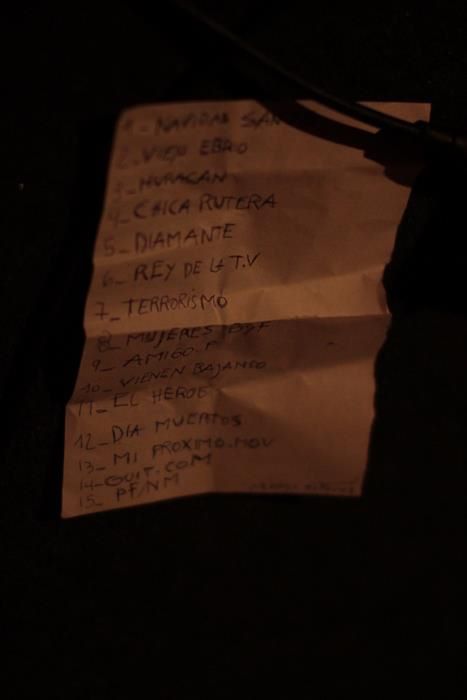 1_ NAVIDAD SAN
2_ VIEJO EBRO
3_ HURACAN
4_ CHICA RUTERA
5_ DIAMANTE
6_ REY DE LA T.V
7_ TERRORISMO
8_ MUJERES
9_ AMIGO P
10_ VIENEN BAJANDO
11_ EL HEROE
12_ DIA MUERTOS
13_ MI PROXIMO MOV
14_ GUIT. COM
15_ PF/NM